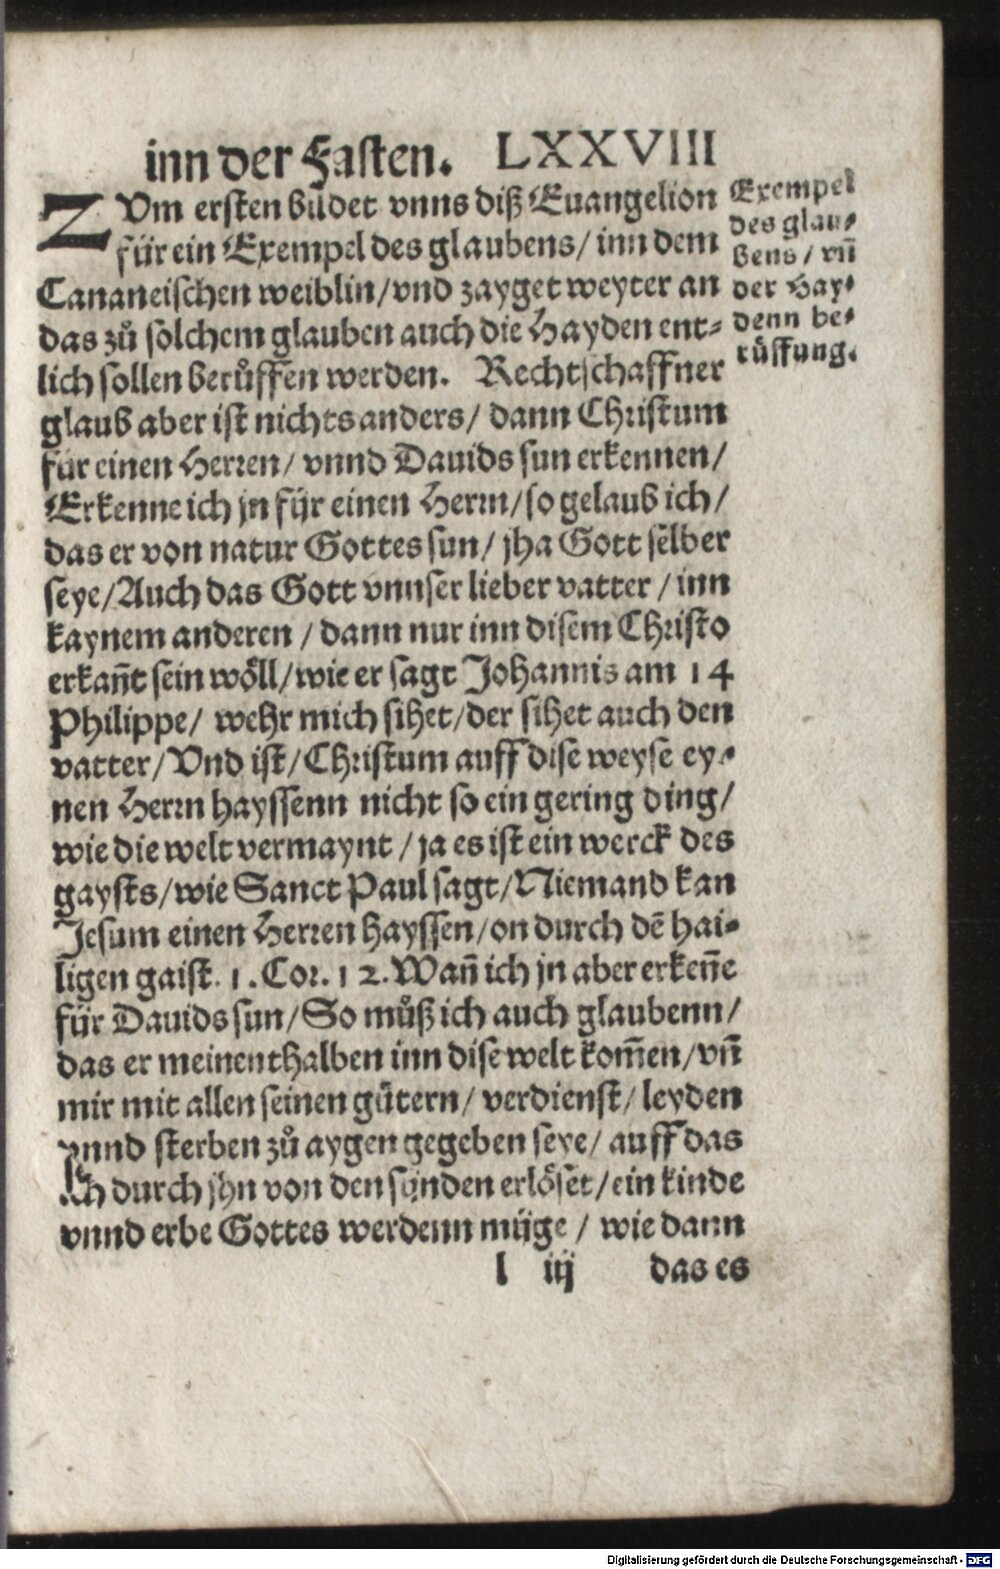 inn der Fasten. LXXVIII
ZVm ersten bildet vnns diß Euangelion
für ein Exempel des glaubens/ inn dem
Cananeischen weiblin/vnd zayget weyter an
das zů solchem glauben auch die Hayden ent⸗
lich sollen berůffen werden. Rechtschaffner
glaub aber ist nichts anders/ dann Christum
für einen Herren/ vnnd Dauids sun erkennen/
Erkenne ich jn für einen Herrn/so gelaub ich/
das er von natur Gottes sun/ jha Gott selber
seye/Auch das Gott vnnser lieber vatter / inn
kaynem anderen / dann nur inn disem Christo
erkañt sein wöll/wie er sagt Johannis am 14
Philippe/ wehr mich sihet/der sihet auch den
vatter/Vnd ist/Christum auff dise weyse ey⸗
nen Herrn hayssenn nicht so ein gering ding/
wie die welt vermaynt / ja es ist ein werck des
gaysts/wie Sanct Paul sagt/Niemand kan
Jesum einen Herren hayssen/on durch dē hai⸗
ligen gaist. 1. Cor. 12. Wañ ich jn aber erkeñe
für Dauids sun/So můß ich auch glaubenn/
das er meinenthalben inn dise welt kom̃en/vñ
mir mit allen seinen gütern/ verdienst/ leyden
vnnd sterben zů aygen gegeben seye/ auff das
ich durch jhn von den sünden erlöset/ein kinde
vnnd erbe Gottes werdenn müge / wie dann
l iij das es
Exempel
des glau⸗
bens/ vñ
der Hay⸗
denn be⸗
růffung.
Digitalisierung gefördert durch die Deutsche Forschungsgemeinschaft - DFG